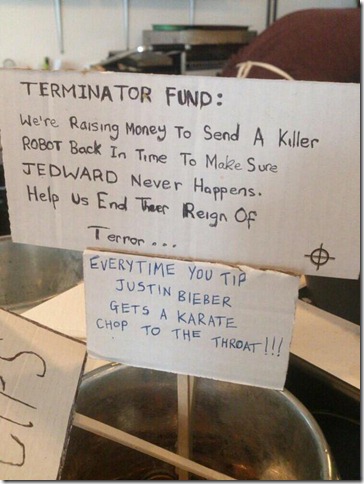 TERMINATOR FUND:
We're Raising Money To Send A Killer
ROBOT Back In Time To Make Sure
JEDWARD Never Happens.
Help Us End Their Reign Of
Terror...
EVERYTIME YOU TIP
JUSTIN BIEBER
GETS A KARATE
CHOP TO THE THROAT!!!